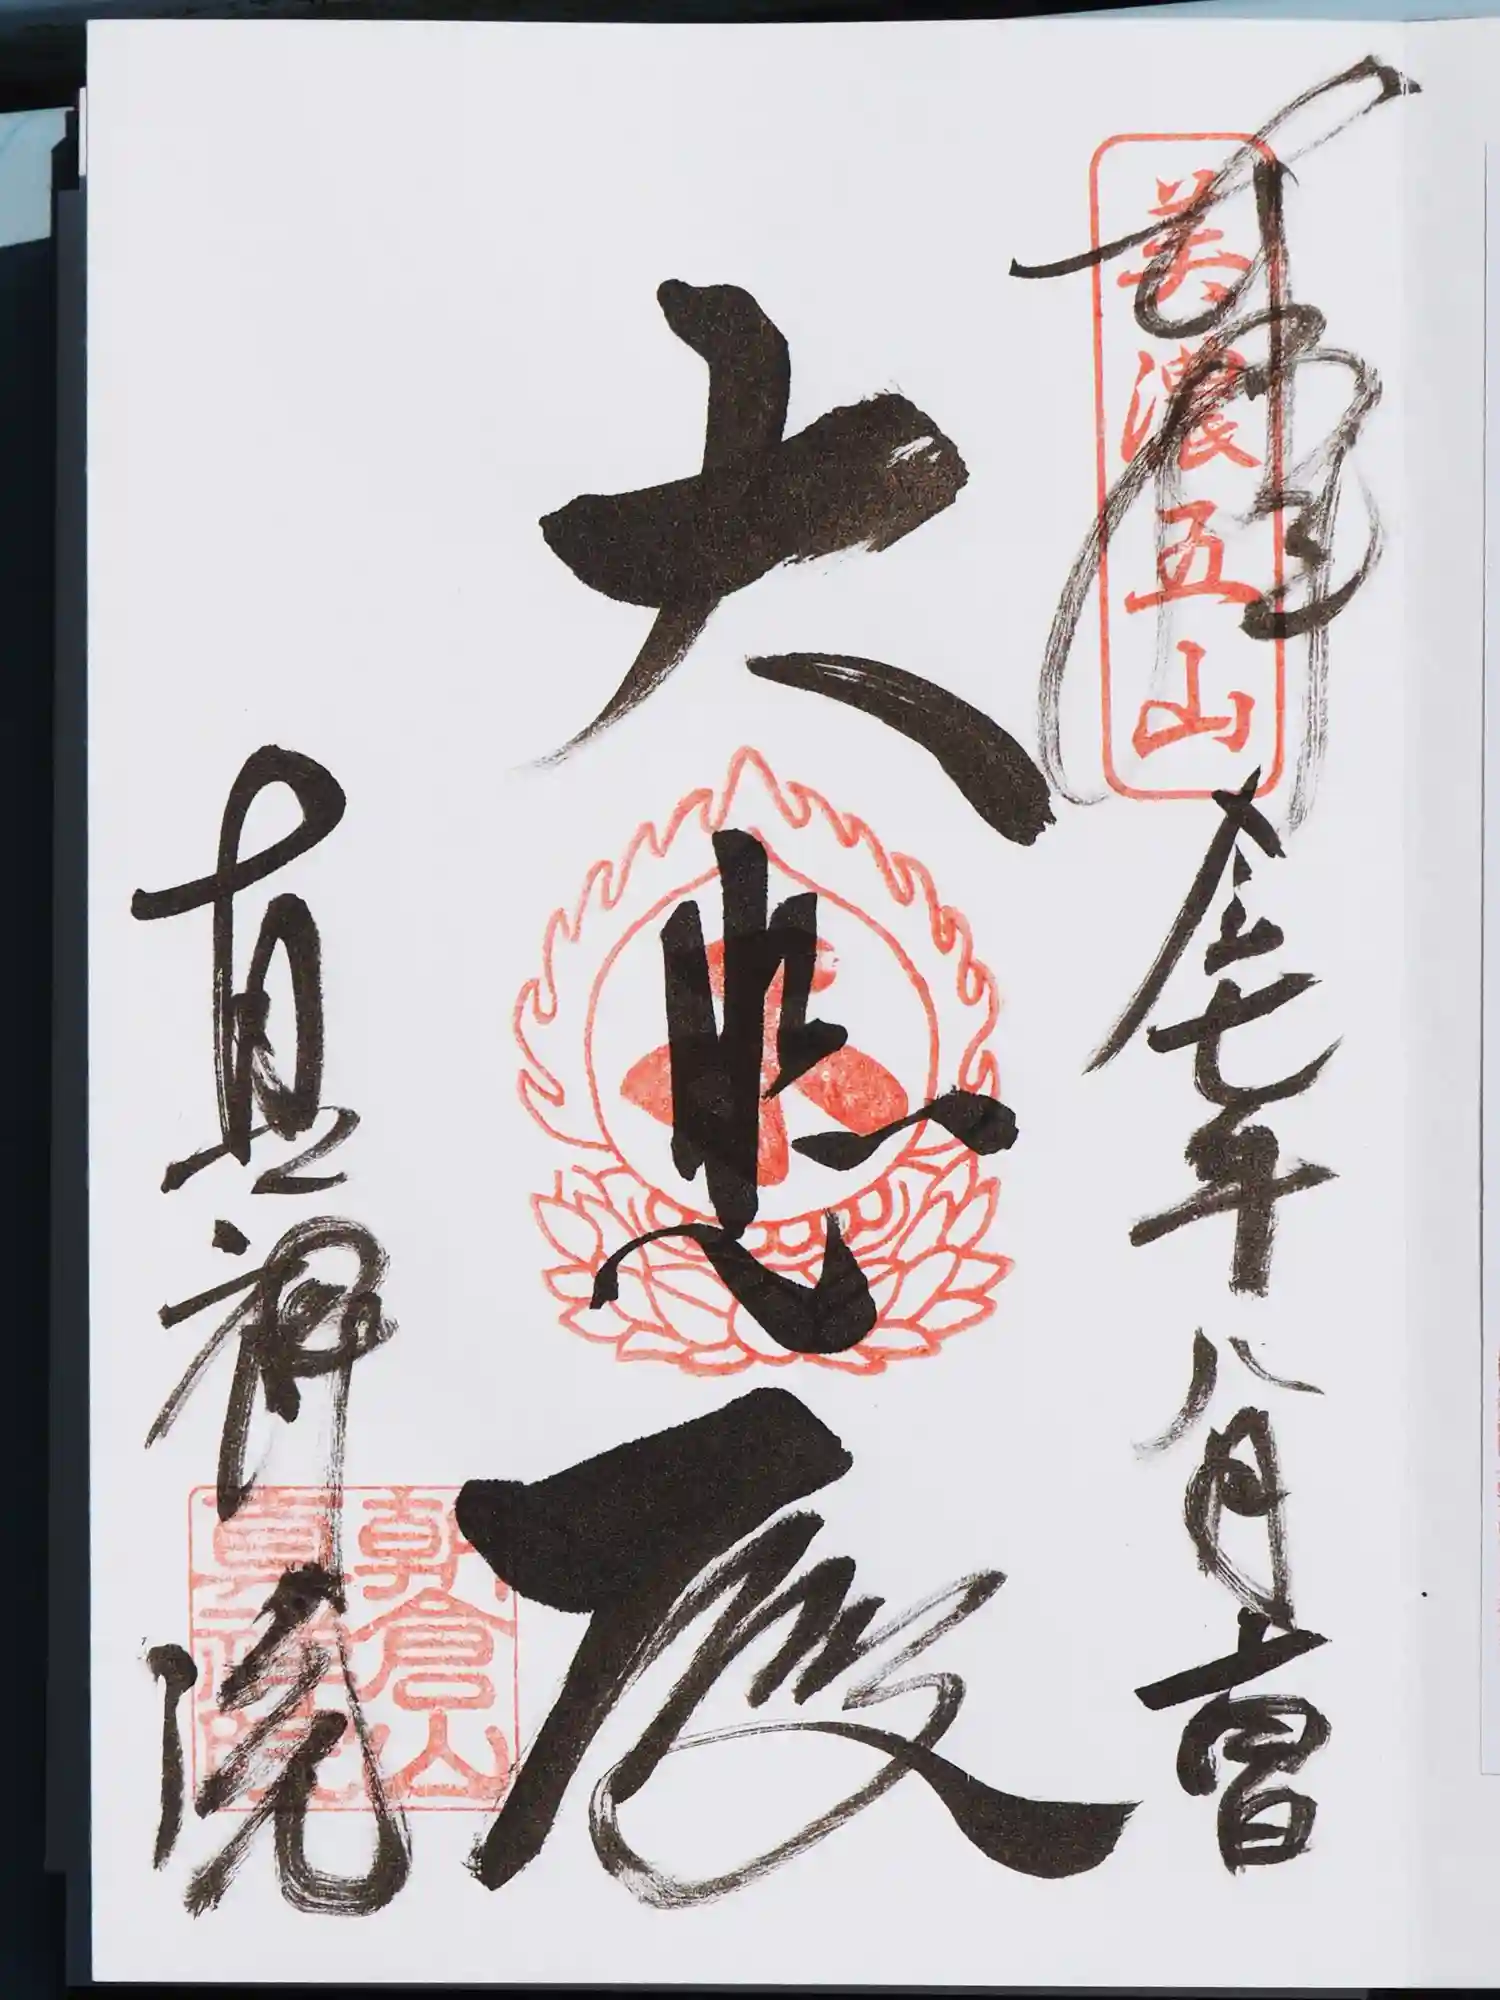 奉拝
美濃五山
令七年八月十四日
大悲殿
真禅院
朝倉山
真禅院